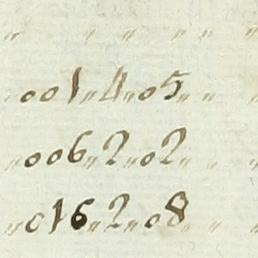 " " " " " "
"001"4"05" "
"006"2"02" "
"016"2"08" "